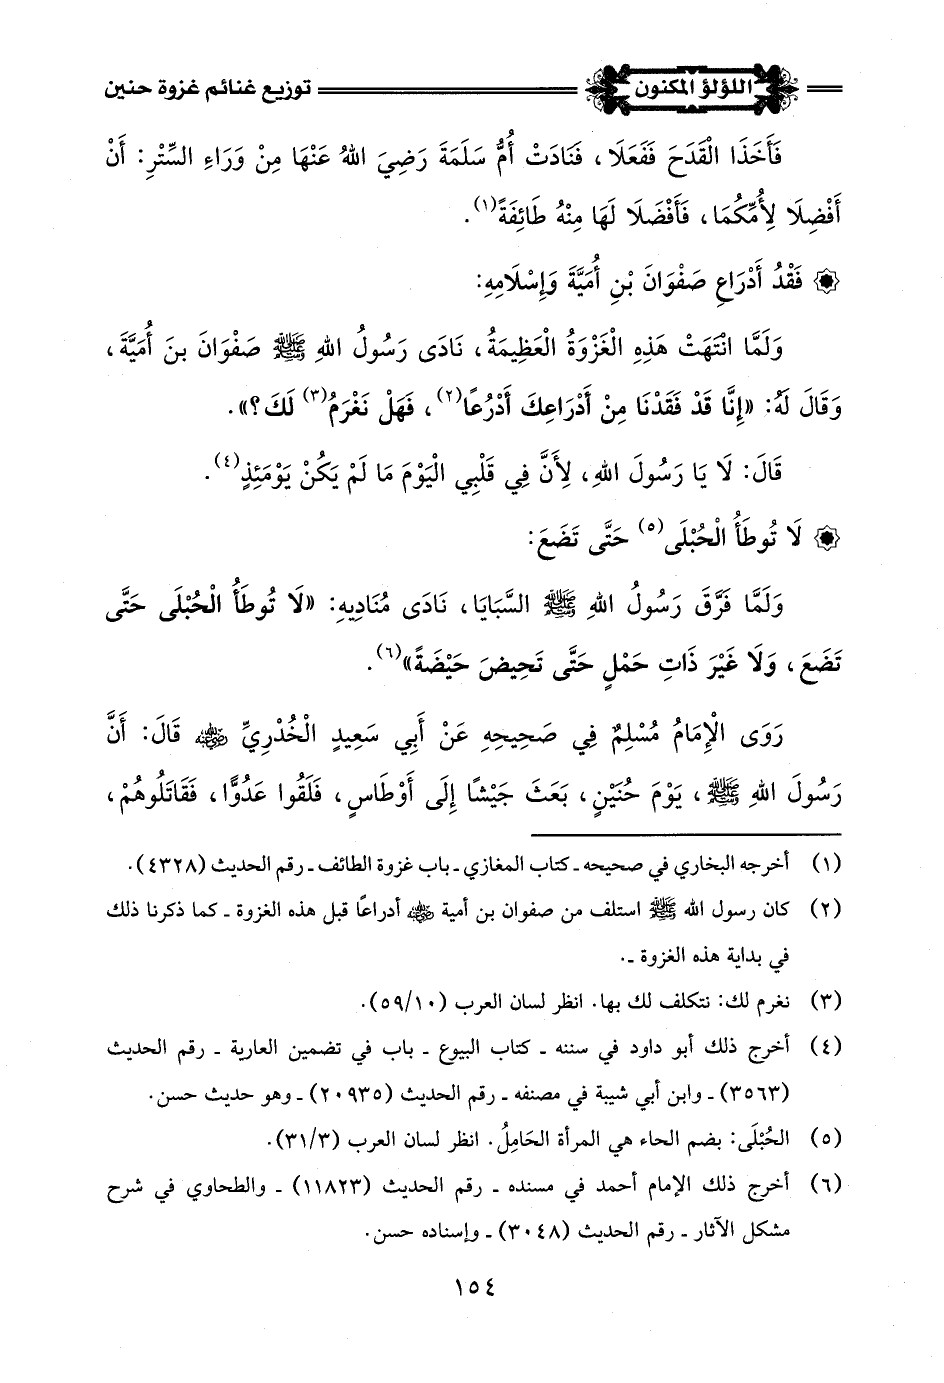 اللؤلؤ المكنون توزيع غنائم غزوة حنين
فَأَخَذَا الْقَدَحَ فَفَعَلَا، فَنَادَتْ أُمُّ سَلَمَةَ رَضِيَ اللهُ عَنْهَا مِنْ وَرَاءِ السِّتْرِ: أَنْ
أَفْضِلَا لِأُمِّكُمَا، فَأَفْضَلَا لَهَا مِنْهُ طَائِفَةً(١).
۞ فَقْدُ أَدْرَاعِ صَفْوَانَ بْنِ أُمَيَّةَ وَإِسْلَامِهِ:
وَلَمَّا انْتَهَتْ هَذِهِ الْغَزْوَةُ الْعَظِيمَةُ، نَادَى رَسُولُ اللهِ ﷺ صَفْوَانَ بنَ أُمَيَّةَ،
وَقَالَ لَهُ: «إِنَّا قَدْ فَقَدْنَا مِنْ أَدْرَاعِكَ أَدْرُعًا(٢)، فَهَلْ نَغْرَمُ(٣) لَكَ؟».
قَالَ: لَا يَا رَسُولَ اللهِ، لِأَنَّ فِي قَلْبِي الْيَوْمَ مَا لَمْ يَكُنْ يَوْمَئِذٍ(٤).
۞ لَا تُوطَأُ الْحُبْلَى(٥) حَتَّى تَضَعَ:
وَلَمَّا فَرَّقَ رَسُولُ اللهِ ﷺ السَّبَايَا، نَادَى مُنَادِيهِ: «لَا تُوطَأُ الْحُبْلَى حَتَّى
تَضَعَ، وَلَا غَيْرَ ذَاتِ حَمْلٍ حَتَّى تَحِيضَ حَيْضَةً»(٦).
رَوَى الْإِمَامُ مُسْلِمٌ فِي صَحِيحِهِ عَنْ أَبِي سَعِيدٍ الْخُدْرِيِّ رضي الله عنه قَالَ: أَنَّ
رَسُولَ اللهِ ﷺ، يَوْمَ حُنَيْنٍ، بَعَثَ جَيْشًا إِلَى أَوْطَاسٍ، فَلَقُوا عَدُوًّا، فَقَاتَلُوهُمْ،
(١) أخرجه البخاري في صحيحه ـ كتاب المغازي ـ باب غزوة الطائف ـ رقم الحديث (٤٣٢٨).
(٢) كان رسول الله ﷺ استلف من صفوان بن أمية رضي الله عنه أدراعًا قبل هذه الغزوة ـ كما ذكرنا ذلك
في بداية هذه الغزوة ـ.
(٣) نغرم لك: نتكلف لك بها. انظر لسان العرب (٥٩/١٠).
(٤) أخرج ذلك أبو داود في سننه ـ كتاب البيوع ـ باب في تضمين العارية ـ رقم الحديث
(٣٥٦٣) ـ وابن أبي شيبة في مصنفه ـ رقم الحديث (٢٠٩٣٥) ـ وهو حديث حسن.
(٥) الحُبْلَى: بضم الحاء هي المرأة الحَامِلُ. انظر لسان العرب (٣١/٣).
(٦) أخرج ذلك الإمام أحمد في مسنده ـ رقم الحديث (١١٨٢٣) ـ والطحاوي في شرح
مشكل الآثار ـ رقم الحديث (٣٠٤٨) ـ وإسناده حسن.
١٥٤